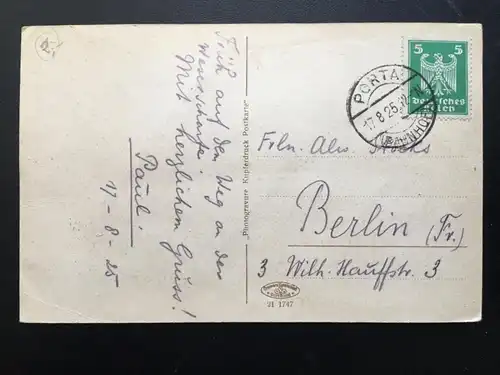 Früh auf den Weg an der
Mit herzlichem Gruss!
Paul.
17-8-25
Photogravure Kupferdruck Postkarte
5 5
Deutsches
PORTA
17.8.25
(BAHNHOF)
Frln.
Berlin (Fr.)
3 Wilh. Hauffstr. 3
21 1747